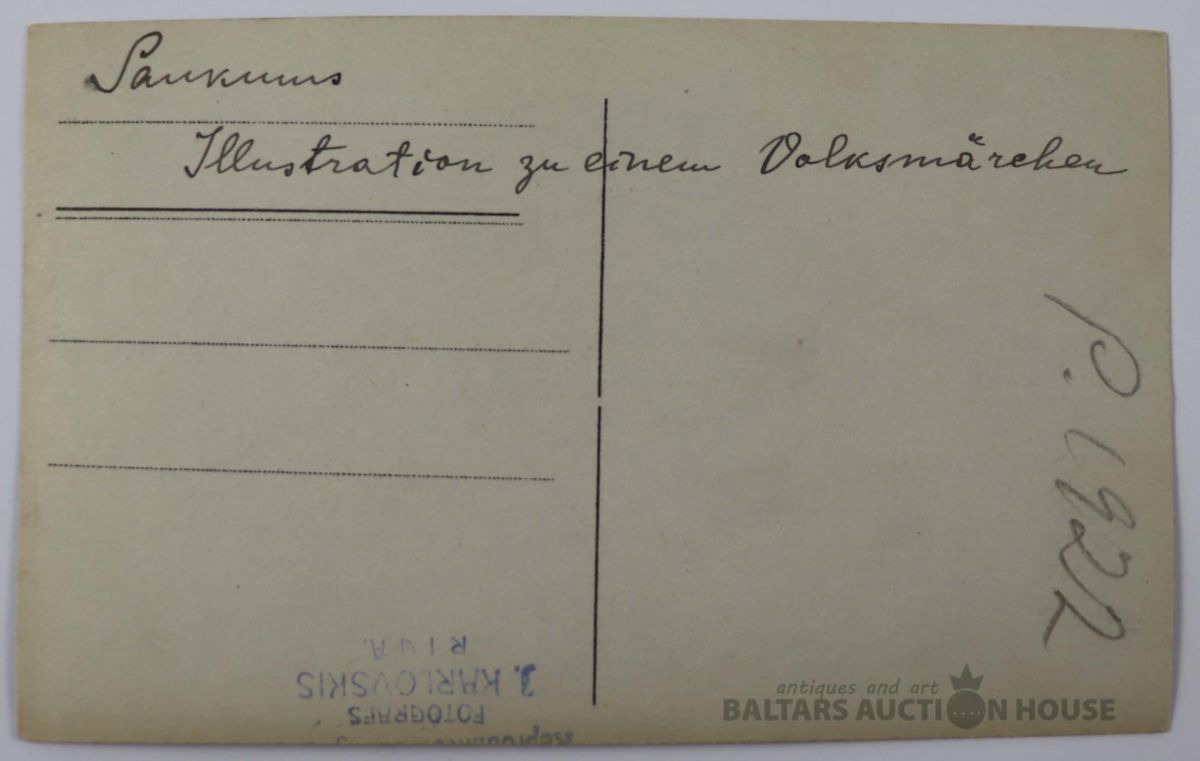 Saukums
Illustration zu einem Volksmärchen
P. 1922
FOTOGRAFS
J. KARLOVSKIS
RIGA.
antiques and art
BALTARS AUCTION HOUSE